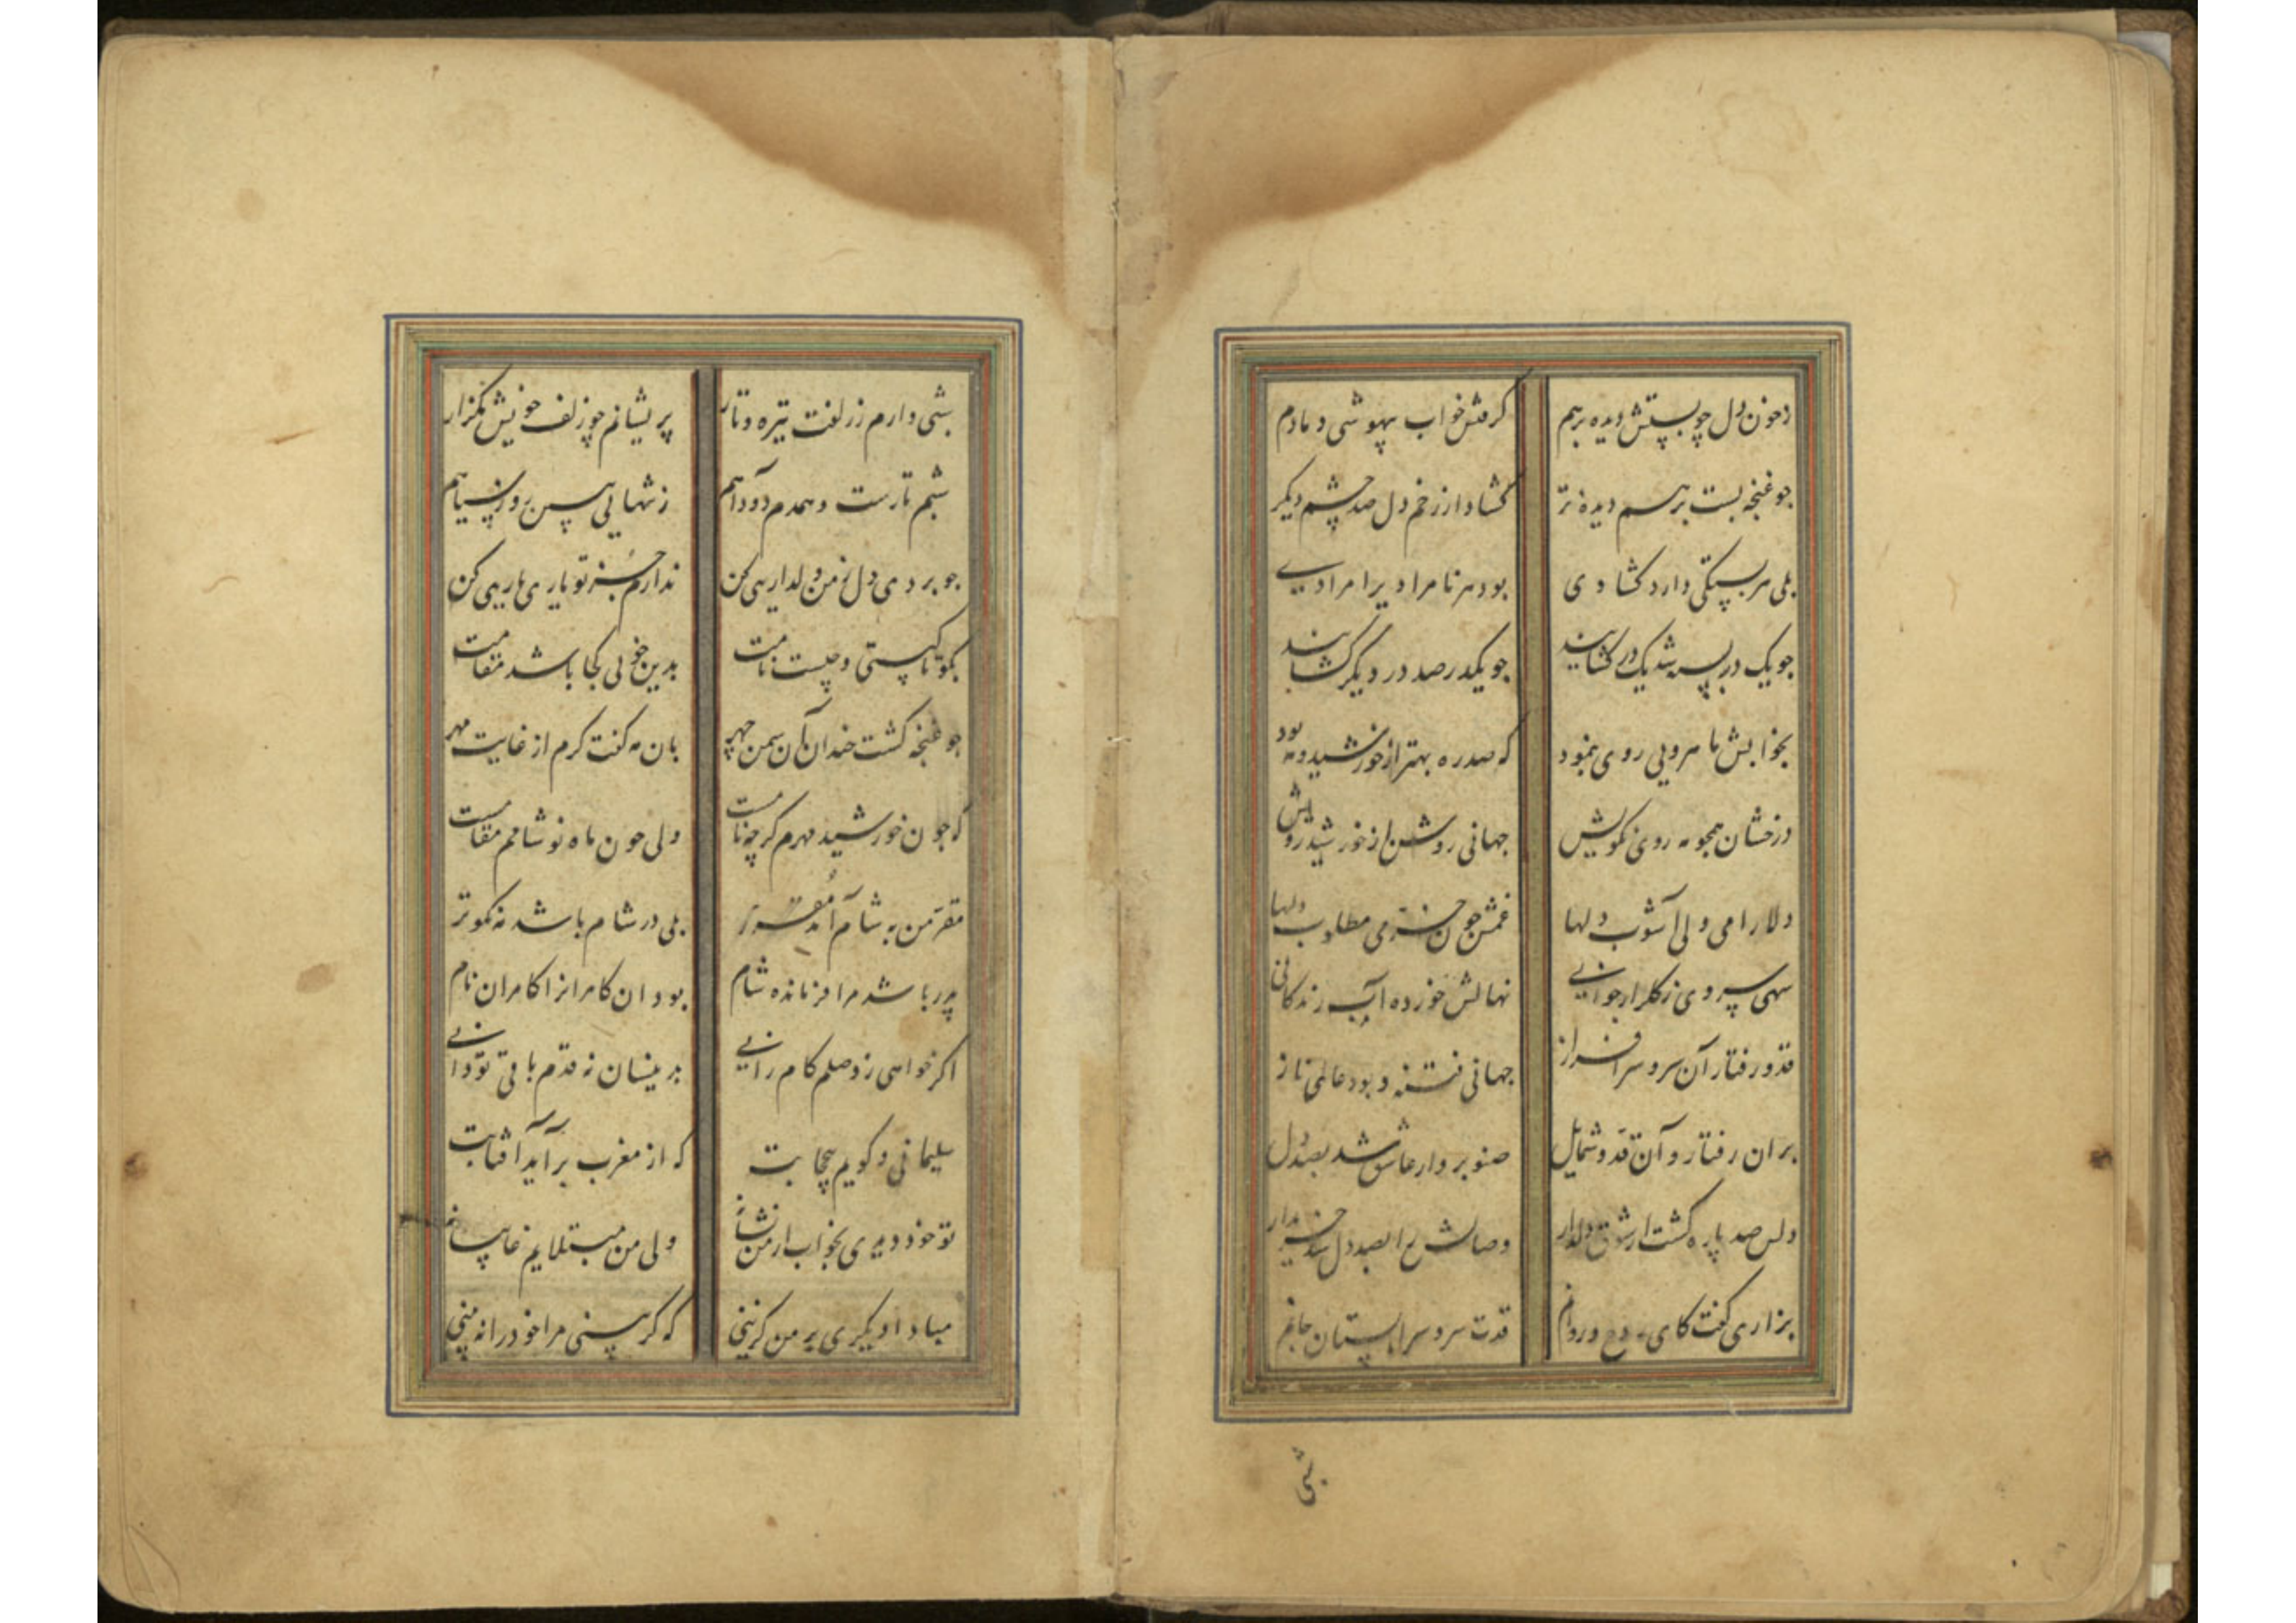 زخون دل چو بستش دیده برهم
کرفتش خواب بیهوشی دمادم
جو غنجه بست برهم دیده تر
کشاد از زخم دل صد چشم دیکر
بلی هر بستکی دارد کشادی
بود هر نامرادیرا مرادی
جو یک در بسته شد یک در کشایند
جو یکدر صد در دیکر کشایند
بخوابش ماهرویی روی بنمود
که صدره بهتر از خورشید و مه بود
درخشان همجو مه روی نکویش
جهانی روشن از خورشید رویش
دلارامی ولی آشوب دلها
غمش جون خرمی مطلوب دلها
سهی سروی ز کلزار جوانی
نهالش خورده آب زندکانی
قد و رفتار آن سرو سرافراز
جهانی فتنه و بود عالمی ناز
بران رفتار و آن قد و شمایل
صنوبر وار عاشق شد بصد دل
دلش صد پاره کشت از شوق دلدار
وصالش را بصد دل شد خریدار
بزاری کفت کای روح و روانم
قدت سرو سرابستان جانم
شبی
شبی دارم ز زلفت تیره و تار
پریشانم چو زلف خویش مکذار
شبم تارست و همدم دود آهم
ز تنهایی ببین روز سیاهم
جو بردی دل ز من دلداریی کن
ندارم جز تو یاری یاریی کن
بکو تا کیستی و چیست نامت
بدین خوبی کجا باشد مقامت
جو غنجه کشت خندان آن سمن چهر
بان مه کفت کرم از غایت مهر
که جون خورشید مهرم کرچه نامست
ولی جون ماه نو شامم مقامست
مقر من به شام آمد مقرر
بلی در شام باشد مه نکوتر
پدر باشد مرا فرمانده شام
بود ان کامرانرا کامران نام
اکر خواهی ز وصلم کامرانی
برینسان نه قدم باقی تو دانی
سلیمانی و کویم بیحجابت
که از مغرب برآید آفتابت
تو خود دیدی بخواب از من نشانه
ولی من مبتلایم غایبانه
مبادا دیکری بر من کزینی
که کر بینی مرا خود را نه بینی